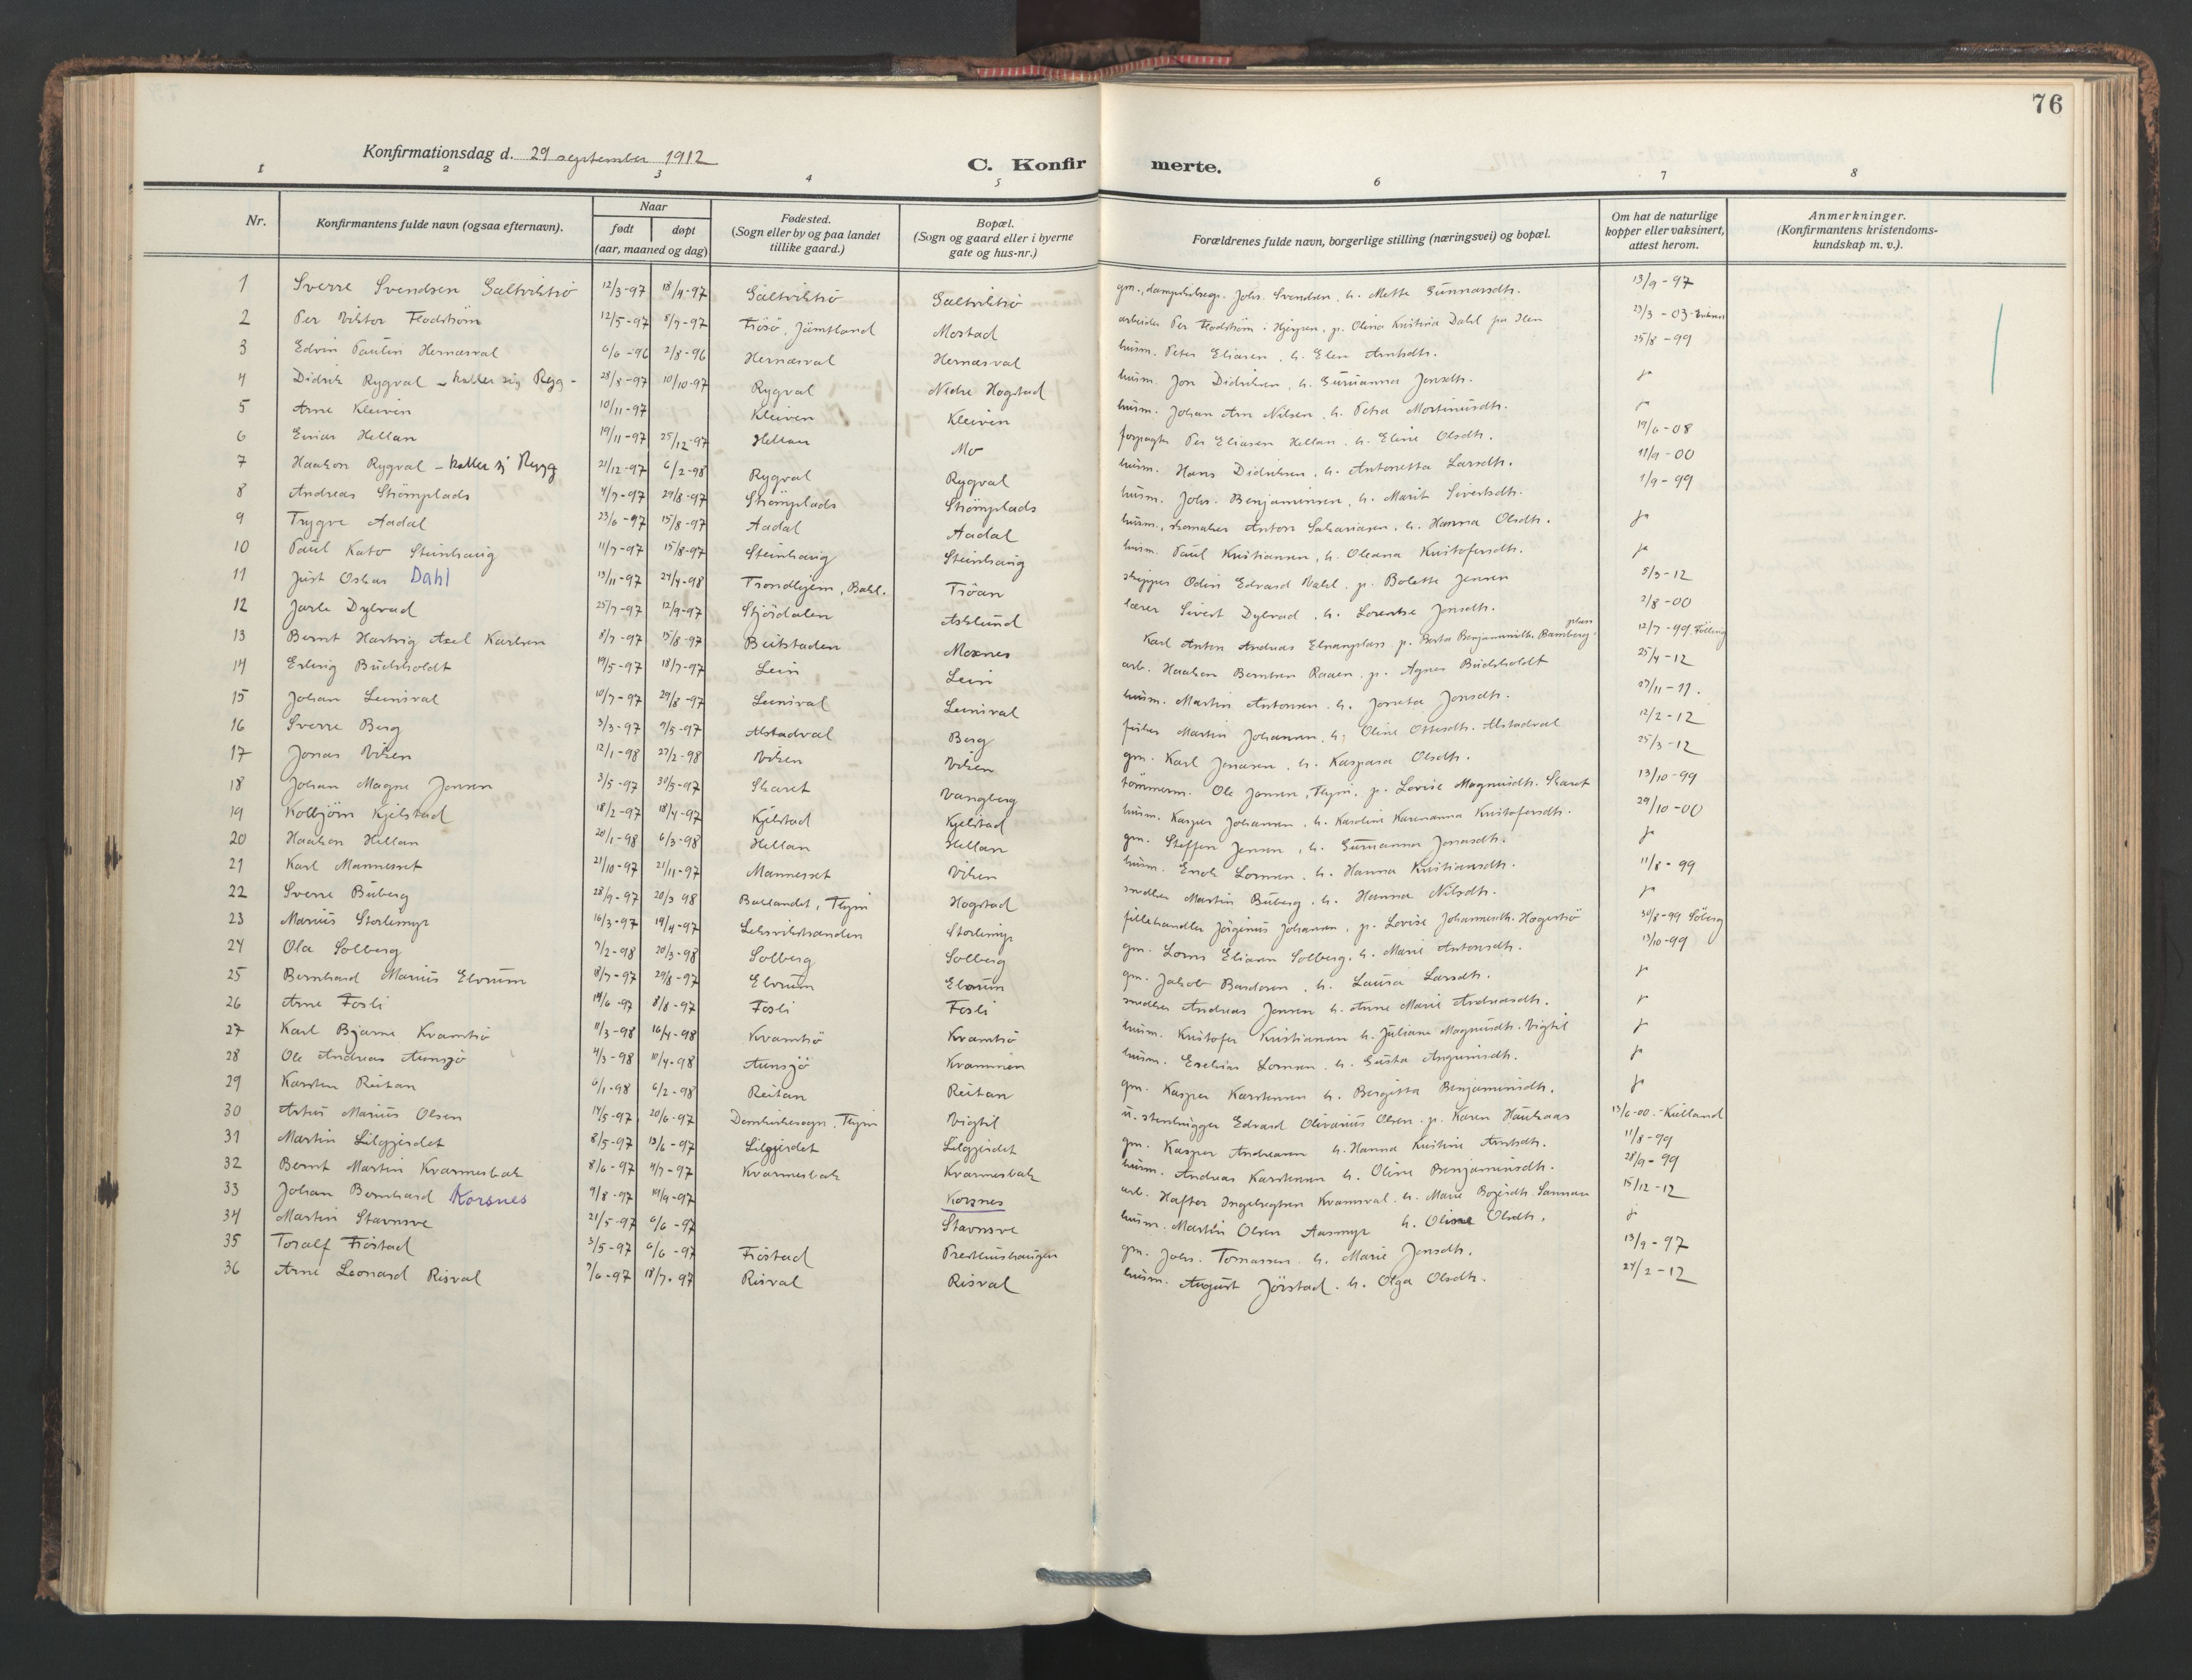 76
Konfirmationsdag d. 29 september 1912
C. Konfirmerte.
1 2 3 4 5 6 7 8
Nr. Konfirmantens fulde navn (ogsaa efternavn). Naar født døpt (aar, maaned og dag) Fødested. (Sogn eller by og paa landet tillike gaard.) Bopæl. (Sogn og gaard eller i byerne gate og hus-nr.) Forældrenes fulde navn, borgerlige stilling (næringsvei) og bopæl. Om hat de naturlige kopper eller vaksinert, attest herom. Anmerkninger. (Konfirmantens kristendomskundskap m. v.).
1 Sverre Svendsen Saltviktrø 12/3-97 18/4-97 Saltviktrø Saltviktrø gm., Johs. Svendsen, h. Mette Gunnarsdtr. 13/9-97
2 Per Viktor Flodström 12/5-97 Frösö, Jämtland Mostad arbeider Per Flodström i Hjerpen, p. Olina Kristina Dahl 23/3-03
3 Edvin Paulin Hernæsval 6/6-96 2/8-96 Hernæsval Hernæsval husm. Peter Eliasen, h. Elen Arntsdtr. 25/8-99
4 Didrik Rygval - kaller sig Rygg - 28/8-97 10/10-97 Rygval Nedre Hogstad husm. Jon Didriksen, h. Gurianna Jonsdtr. ja
5 Arne Kleiven 10/11-97 Kleiven Kleiven husm. Johan Arn Nilsen, h. Petra Mortinusdtr. ja
6 Einar Hellan 19/11-97 25/12-97 Hellan Mo forpagter Per Eliasen Hellan, h. Eline Olsdtr. 19/6-08
7 Haakon Rygval - kaller sig Rygg 21/12-97 6/2-98 Rygval Rygval husm. Hans Didriksen, h. Antonetta Larsdtr. 11/9-00
8 Andreas Strömplads 4/7-97 29/8-97 Strömplads Strömplads husm. Johs. Benjaminsen, h. Marit Sivertsdtr. 1/9-99
9 Trygve Aadal 23/6-97 15/8-97 Aadal Aadal husm., skomaker Anton Sakariasen, h. Hanna Olsdtr. ja
10 Paul Kato Steinhaug 11/7-97 15/8-97 Steinhaug Steinhaug husm. Paul Kristiansen, h. Oleana Kristofersdtr. ja
11 Just Oskar Dahl 13/11-97 24/4-98 Trondhjem, Bakl. Tröan skipper Odin Edvard Dahl, p. Bolette Jensen 5/3-12
12 Jarle Dybvad 25/7-97 12/9-97 Stjördalen Asklund lærer Sivert Dybvad, h. Lorentse Jonsdtr. 2/8-00
13 Bernt Hartvig Axel Karlsen 8/7-97 15/8-97 Beitstaden Moxnes Karl Anton Andreas Elnanplass p. Berta Benjaminsdtr. Bamberg plass 12/7-99
14 Erling Buchholdt 19/5-97 18/7-97 Lein Lein arb. Haakon Berntsen Raaen, p. Agnes Buchholdt 25/4-12
15 Johan Leinsval 10/7-97 29/8-97 Leinsval Leinsval husm. Martin Antonsen, h. Joneta Jonsdtr. 27/11-11.
16 Sverre Berg 3/3-97 9/5-97 Alstadval Berg fisker Martin Johansen, h. Oline Ottesdtr. Alstadval 12/2-12
17 Jonas Viken 12/1-98 27/2-98 Viken Viken gm. Karl Jonasen, h. Kaspara Olsdtr. 25/3-12
18 Johan Magne Jensen 3/5-97 30/5-97 Skaret Vangberg tömmerm. Ole Jensen, Thjm. p. Lovise Magnusdtr. Skaret 13/10-99
19 Kolbjörn Kjelstad 18/2-97 18/4-97 Kjelstad Kjelstad husm. Kasper Johansen, h. Karoline Karenanna Kristofersdtr. 29/10-00
20 Haakon Hellan 20/1-98 6/3-98 Hellan Hellan gm. Steffen Jensen, h. Gurianna Jonasdtr. ja
21 Karl Mannesset 21/10-97 21/11-97 Mannesset Viken husm. Enok Lornsen, h. Hanna Kristiansdtr. 11/8-99
22 Sverre Buberg 28/9-97 20/3 98 Baklandet, Thjm Hogstad snedker Martin Buberg, h. Hanna Nilsdtr. ja
23 Marius Storlimyr 16/3-97 19/4-97 Leksvikstranden Storlimyr fillehandler Jörginus Johansen, p. Lovise Johannesdtr. 30/8-99 Söberg
24 Ola Solberg 7/2-98 20/3-98 Solberg Solberg gm. Lorns Eliasen Solberg, h. Marie Antonsdtr. 13/10-99
25 Bernhard Marius Elvrum 18/7-97 29/8-97 Elvrum Elvrum gm. Jakob Bardosen, h. Laura Larsdtr. ja
26 Arne Fosli 14/6-97 8/8-97 Fosli Fosli snedker Andreas Jensen h. Anne Marie Andreasdtr. ja
27 Karl Bjarne Kvamtrö 11/3-98 16/4-98 Kvamtrö Kvamtrö husm. Kristofer Kristiansen h. Juliane Magnusdtr. Vigtil ja
28 Ole Andreas Aunsjö 4/3-98 10/4-98 Aunsjö Kvammen husm. Esekias Lornsen, h. Gusta Angunisdtr. ja
29 Karsten Reitan 6/1-98 6/2-98 Reitan Reitan gm. Kasper Karstensen h. Bergitta Benjaminsdtr. ja
30 Artur Marius Olsen 14/5-97 20/6-97 Domkirkesogn, Thjm Vigtil u. stenhugger Edvard Olivarius Olsen, p. Karen Haukaas 13/6-00. Kielland
31 Martin Lilgjerdet 8/5-97 13/6-97 Lilgjerdet Lilgjerdet gm. Kasper Andreasen h. Hanna Kristine Arntsdtr. 11/8-99
32 Bernt Martin Kvarmesbak 8/6-97 4/7-97 Kvarmesbak Kvarmesbak husm. Andreas Karstensen h. Oline Benjaminsdtr. 28/9-99
33 Johan Bernhard Korsnes 9/8-97 19/9-97 Korsnes arb. Hafter Ingebrigtsen Kvamsval, h. Marie 15/12-12
34 Martin Stavnsve 21/5-97 6/6-97 Stavnsve husm. Martin Olsen Aasmyr h. Oline Olsdtr. ja
35 Toralf Fröstad 3/5-97 6/6-97 Fröstad Presthushaugen gm. Johs. Tomassen h. Marie Jensdtr. 13/9-97
36 Arne Leonard Risval 7/6-97 18/7-97 Risval Risval husm. August Jörstad, h. Olga Olsdtr. 24/2-12